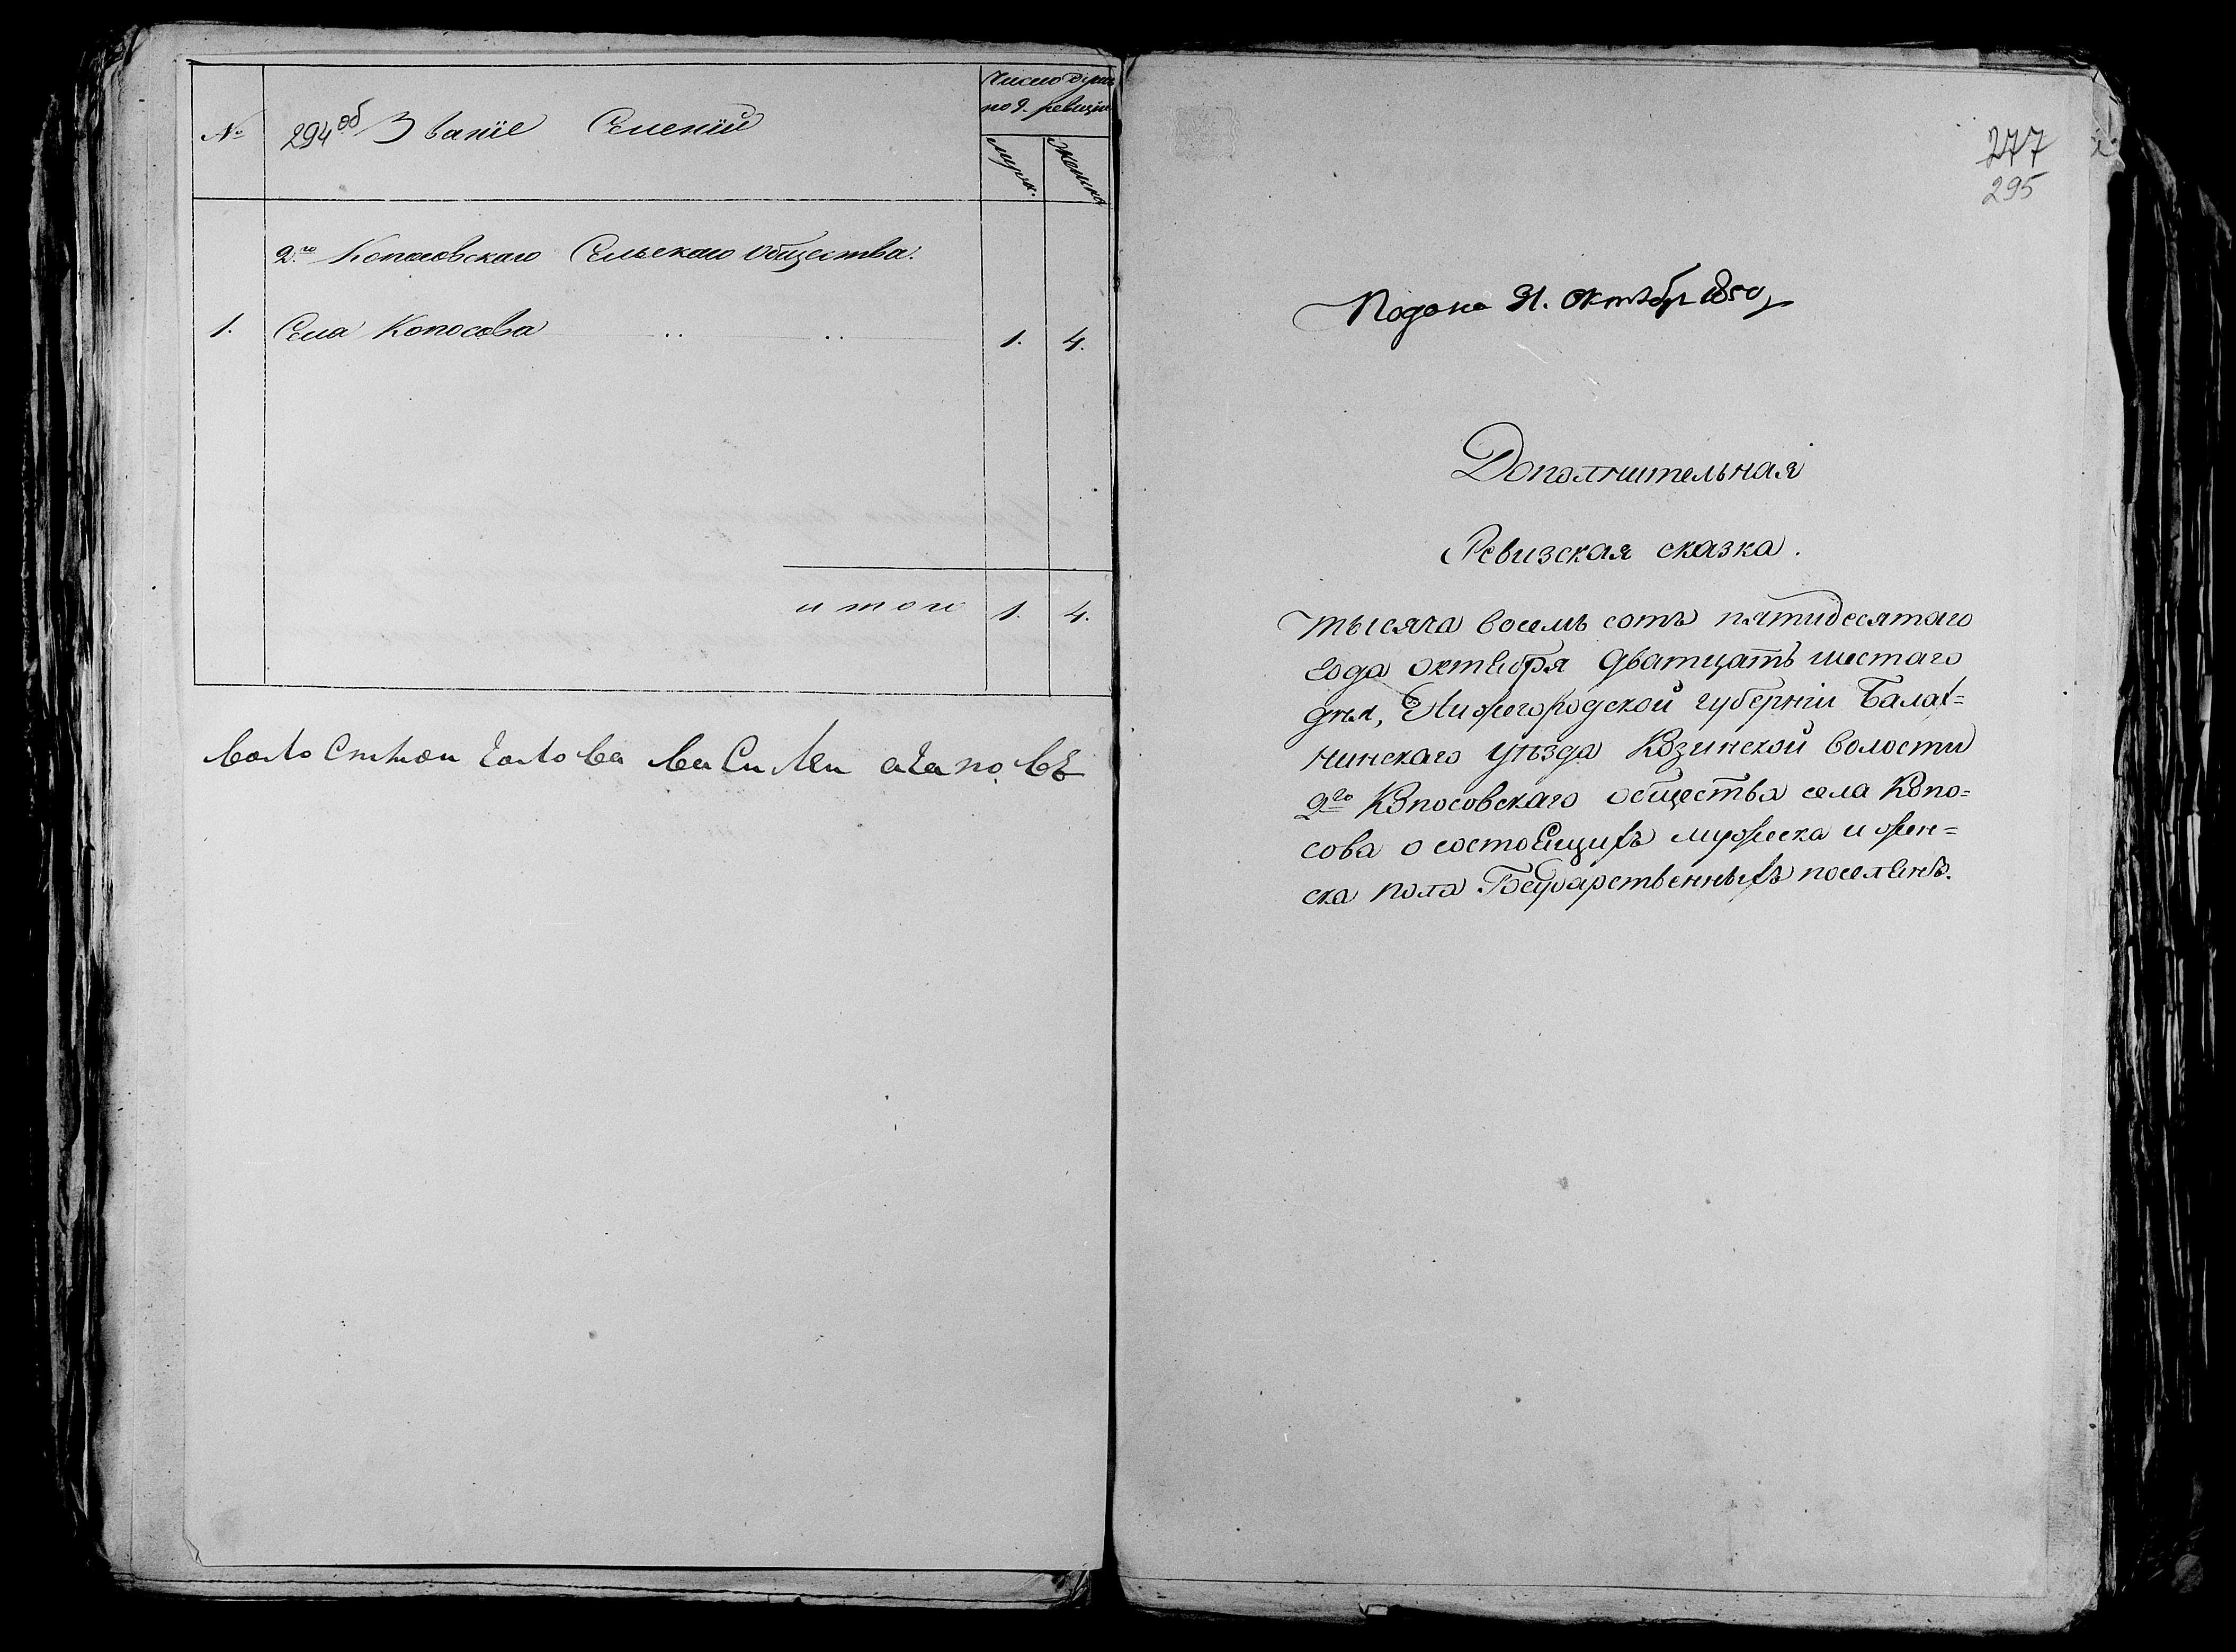 №
294 об
Званіе Селеній
Число душъ
по 9. ревизіи
муж.
женск.
2.го Копосовскаго Сельскаго Общества.
1. Села Копосова 1. 4.
итого 1. 4.
волостной голова василей агаповъ
277
295
Подана 31. Октября 1850 г
Дополнительная
Ревизская сказка.
тысяча восемь сотъ пятидесятаго
года октября дватцать шестаго
дня, Нижегородской губерніи Балах=
нинскаго уѣзда Козинской волости
2го Копосовскаго общества села Копо=
сова о состоящихъ мужеска и жен=
ска пола Государственныхъ поселянъ.